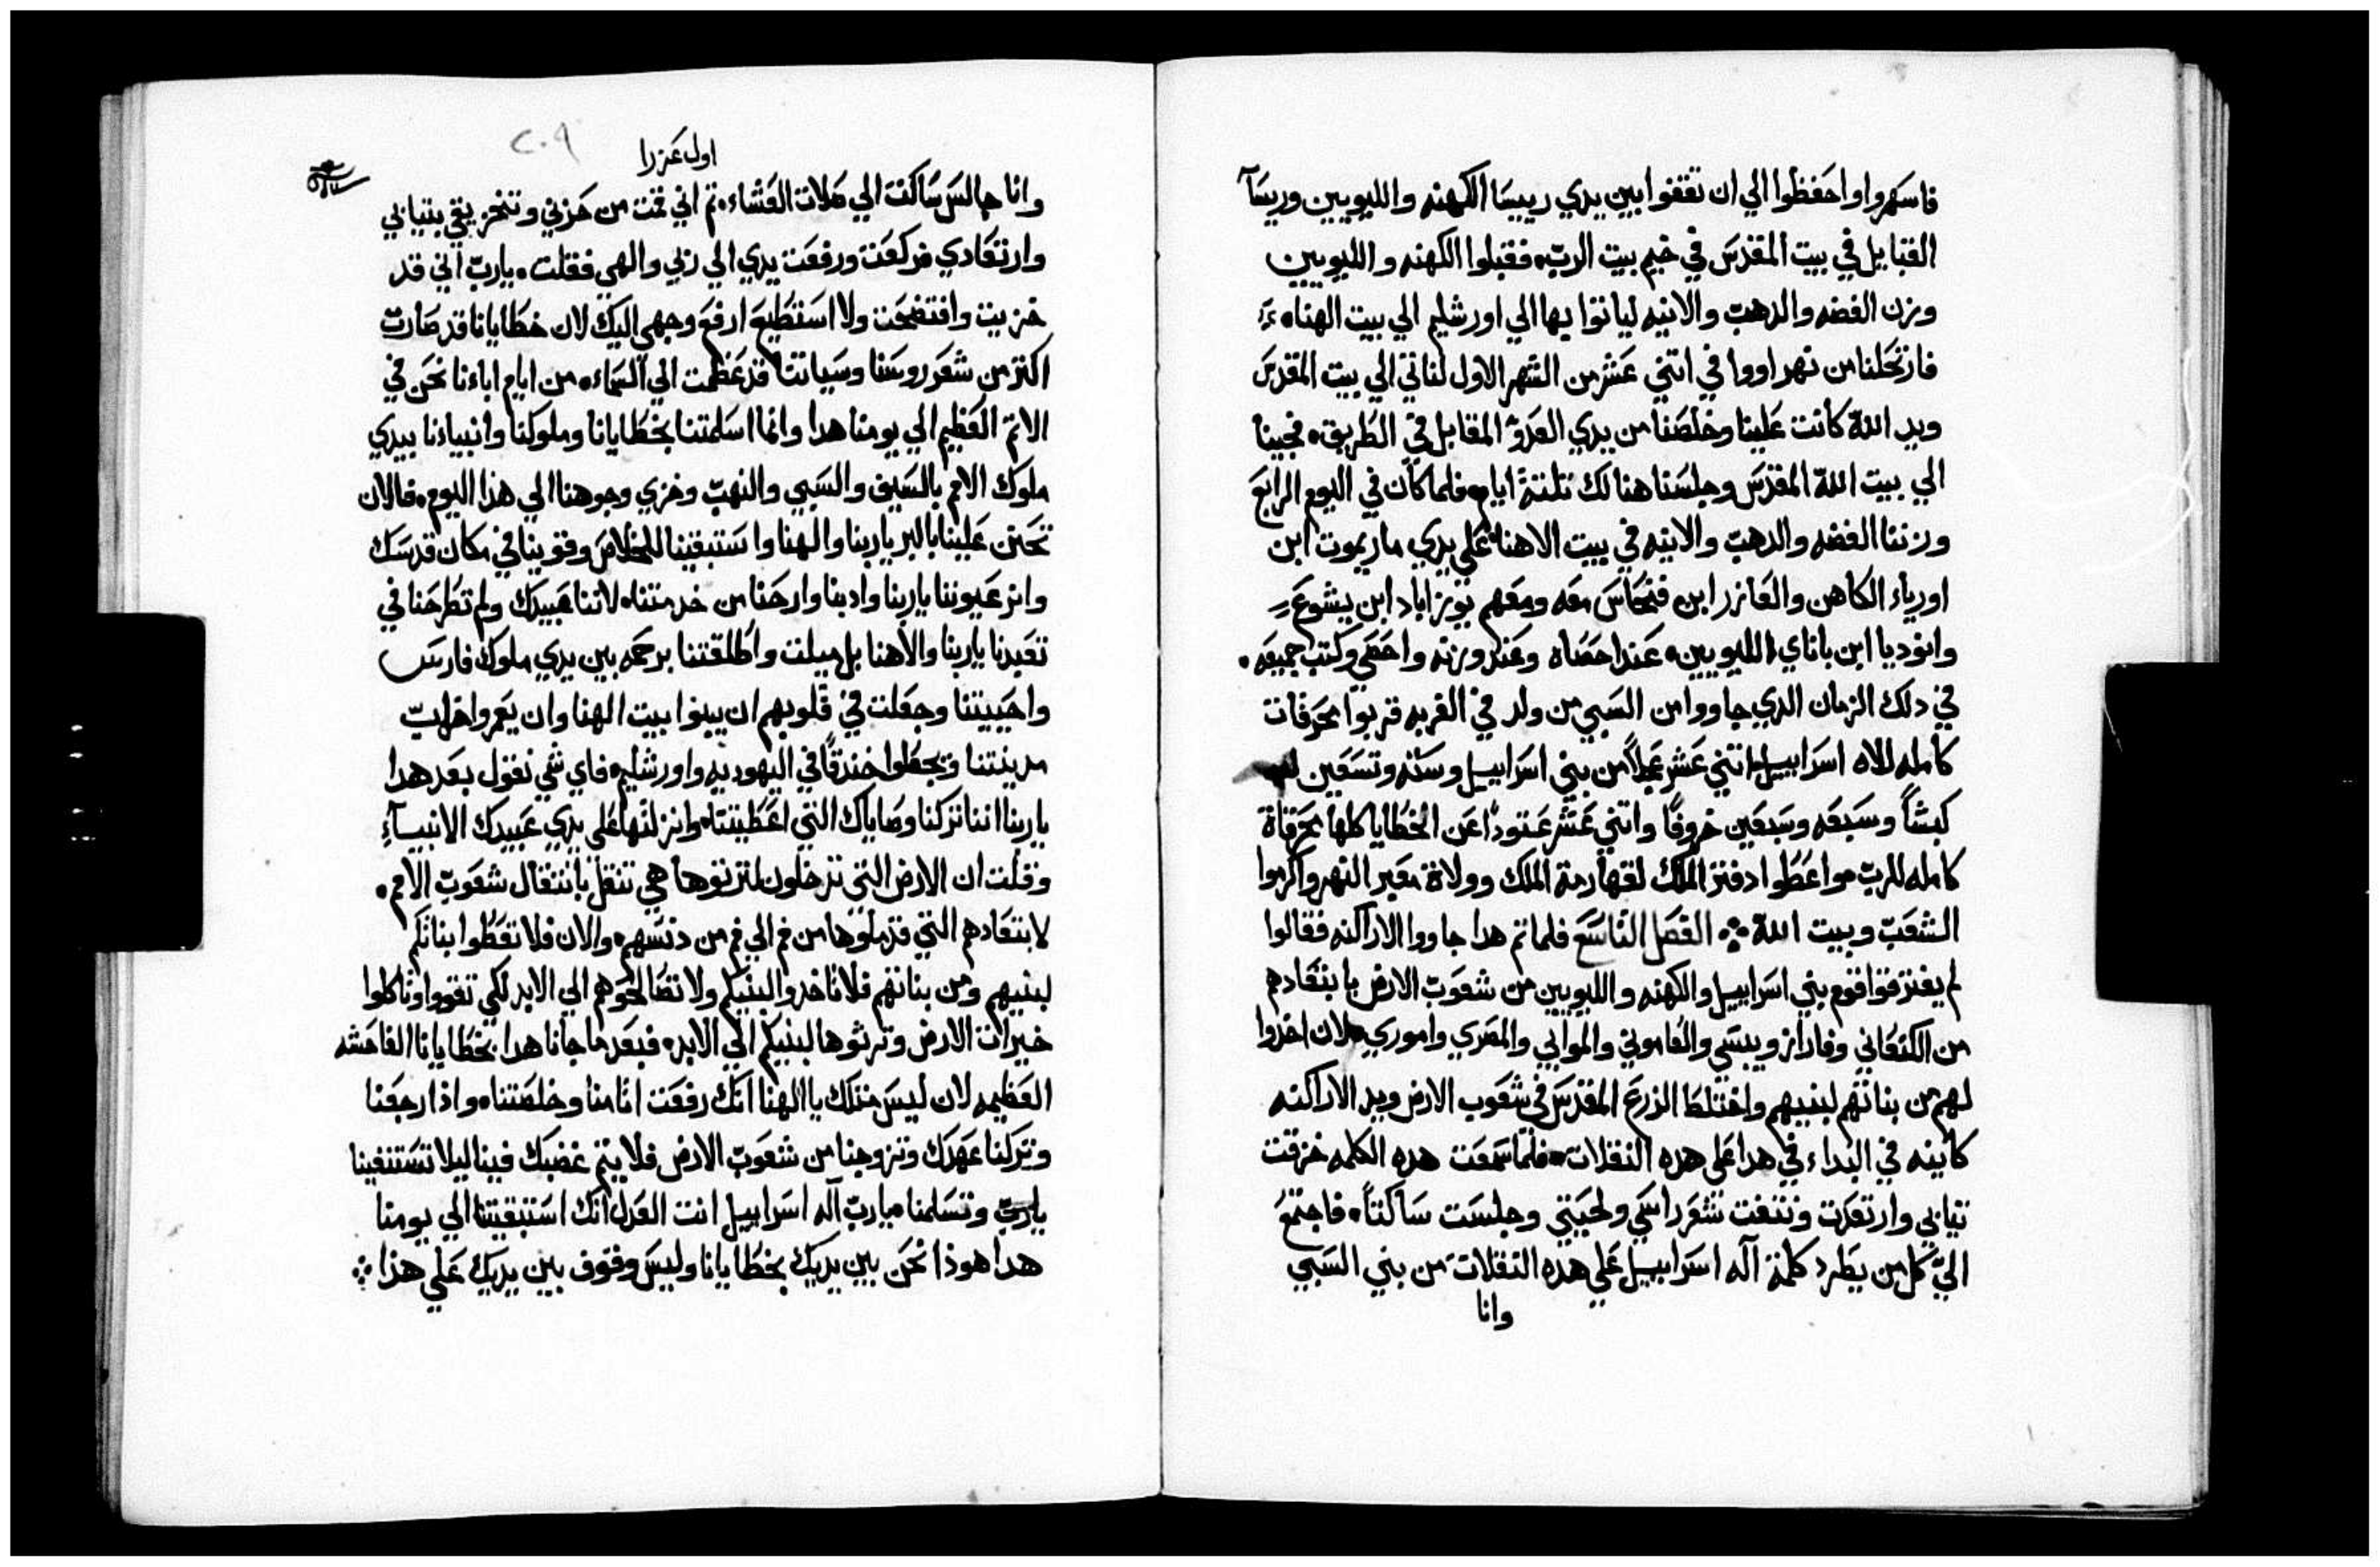 فاسهروا واحفظوا الي ان تقفوا بين يدي رييسا الكهنه والليويين وريسآ
القبايل في بيت المقدس في خيم بيت الرب فقبلوا الكهنه والليويين
وزن الفضه والدهب والانيه لياتوا بها الي اورشليم الي بيت الهنا
فارتحلنا من نهر اووا في اتني عشر من الشهر الاول لناتي الي بيت المقدس
ويد الله كانت علينا وخلصنا من يدي العدو المقابل في الطريق فجينا
الي بيت الله المقدس وجلسنا هنالك تلتة ايام فلما كان في اليوم الرابع
وزننا الفضه والدهب والانيه في بيت الاهنا علي يدي ماريموت ابن
اورياء الكاهن والعازر ابن فنحاس معه ومعهم يوزاباد ابن يشوع
وانوديا ابن باناي الليويين عند احصاه وعند وزنه واحصي وكتب جميعه
في دلك الزمان الدي جاووا من السبي من ولد في الغربه قربوا محرقات
كامله للاه اسراييل اتني عشر عجلاً من بني اسراييل وسته وتسعين
كبشاً وسبعه وسبعين خروفًا واتني عشر عتودًا عن الخطايا كلها محرقاة
كامله للرب واعطوا دفتر الملك لقهارمة الملك وولاة معبر النهر واكرموا
الشعب وبيت الله الفصل التاسع فلما تم هدا جاووا الاراكنه فقالوا
لم يفترقوا قوم بني اسراييل والكهنه والليويين من شعوب الارض بابتعادهم
من الكنعاني وفاراز ويبسي والعاموني والموابي والمصري واموري لان اخدوا
لهم من بناتهم لبنيهم واختلط الزرع المقدس في شعوب الارض ويد الاراكنه
كاينه في البداء في هدا علي هده النفلات فلما سمعت هده الكلمه خزقت
تيابي وارتعدت ونتفت شعر راسي ولحيتي وجلست ساكتاً فاجتمع
الي كل من يطرد كلمة آله اسراييل علي هده النفلات من بني السبي
وانا
اول عزرا
٢٠٩
وانا جالس ساكت الي صلات العشاء تم اني قمت من حزني وتخزيقي بتيابي
وارتعادي فركعت ورفعت يدي الي ربي والهي فقلت يارب اني قد
خزيت وافتضحت ولا استطيع ارفع وجهي اليك لان خطايانا قد صارت
اكتر من شعر روسنا وسياتنا قد عظمت الي السماء من ايام اباءنا نحن في
الاتم العظيم الي يومنا هدا وانما اسلمتنا بخطايانا وملوكنا وانبياءنا بيدي
ملوك الامم بالسيف والسبي والنهب وخزي وجوهنا الي هذا اليوم فالان
تحنن علينا بالبر ياربنا والهنا واستبقينا للخلاص وقوينا في مكان قدسك
وانر عيوننا ياربنا وادبنا وارحنا من خدمتنا لاننا عبيدك ولم تطرحنا في
تعبدنا ياربنا والاهنا بل ميلت واطلقتنا برحمه بين يدي ملوك فارس
واحييتنا وجعلت في قلوبهم ان يبنوا بيت الهنا وان يعمروا خراب
مدينتنا ويجعلوا خندقًا في اليهوديه واورشليم فاي شي نقول بعد هدا
ياربنا اننا تركنا وصاياك التي اعطيتنا وانزلتها علي يدي عبيدك الانبيآء
وقلت ان الارض التي تدخلون لترتوها هي تنقل بانتقال شعوب الامم
لابتعادهم التي قد ملوها من فم الي فم من دنسهم والان فلا تعطوا بناتكم
لبنيهم ومن بناتهم فلا تاخدوا لبنيكم ولا تصالحوهم الي الابد لكي تقووا وتاكلوا
خيرات الارض وترثوها لبنيكم الي الابد فبعد ما جانا هدا بخطايانا الفاحشه
العظيمه لان ليس متلك يا الهنا انك رفعت اتامنا وخلصتنا واذا رجعنا
وتركنا عهدك وتزوجنا من شعوب الارض فلا يتم غضبك فينا ليلا تستنفينا
يارب وتسلمنا يارب آله اسراييل انت العدل انك استبقيتنا الي يومنا
هدا هوذا نحن بين يديك بخطايانا وليس وقوف بين يديك علي هذا